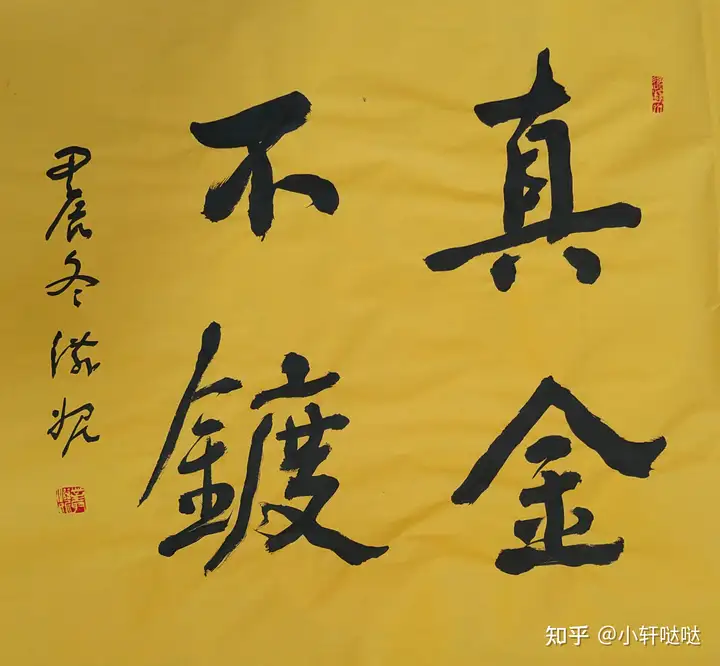 真金
不鍍
甲辰冬
知乎 @小轩哒哒